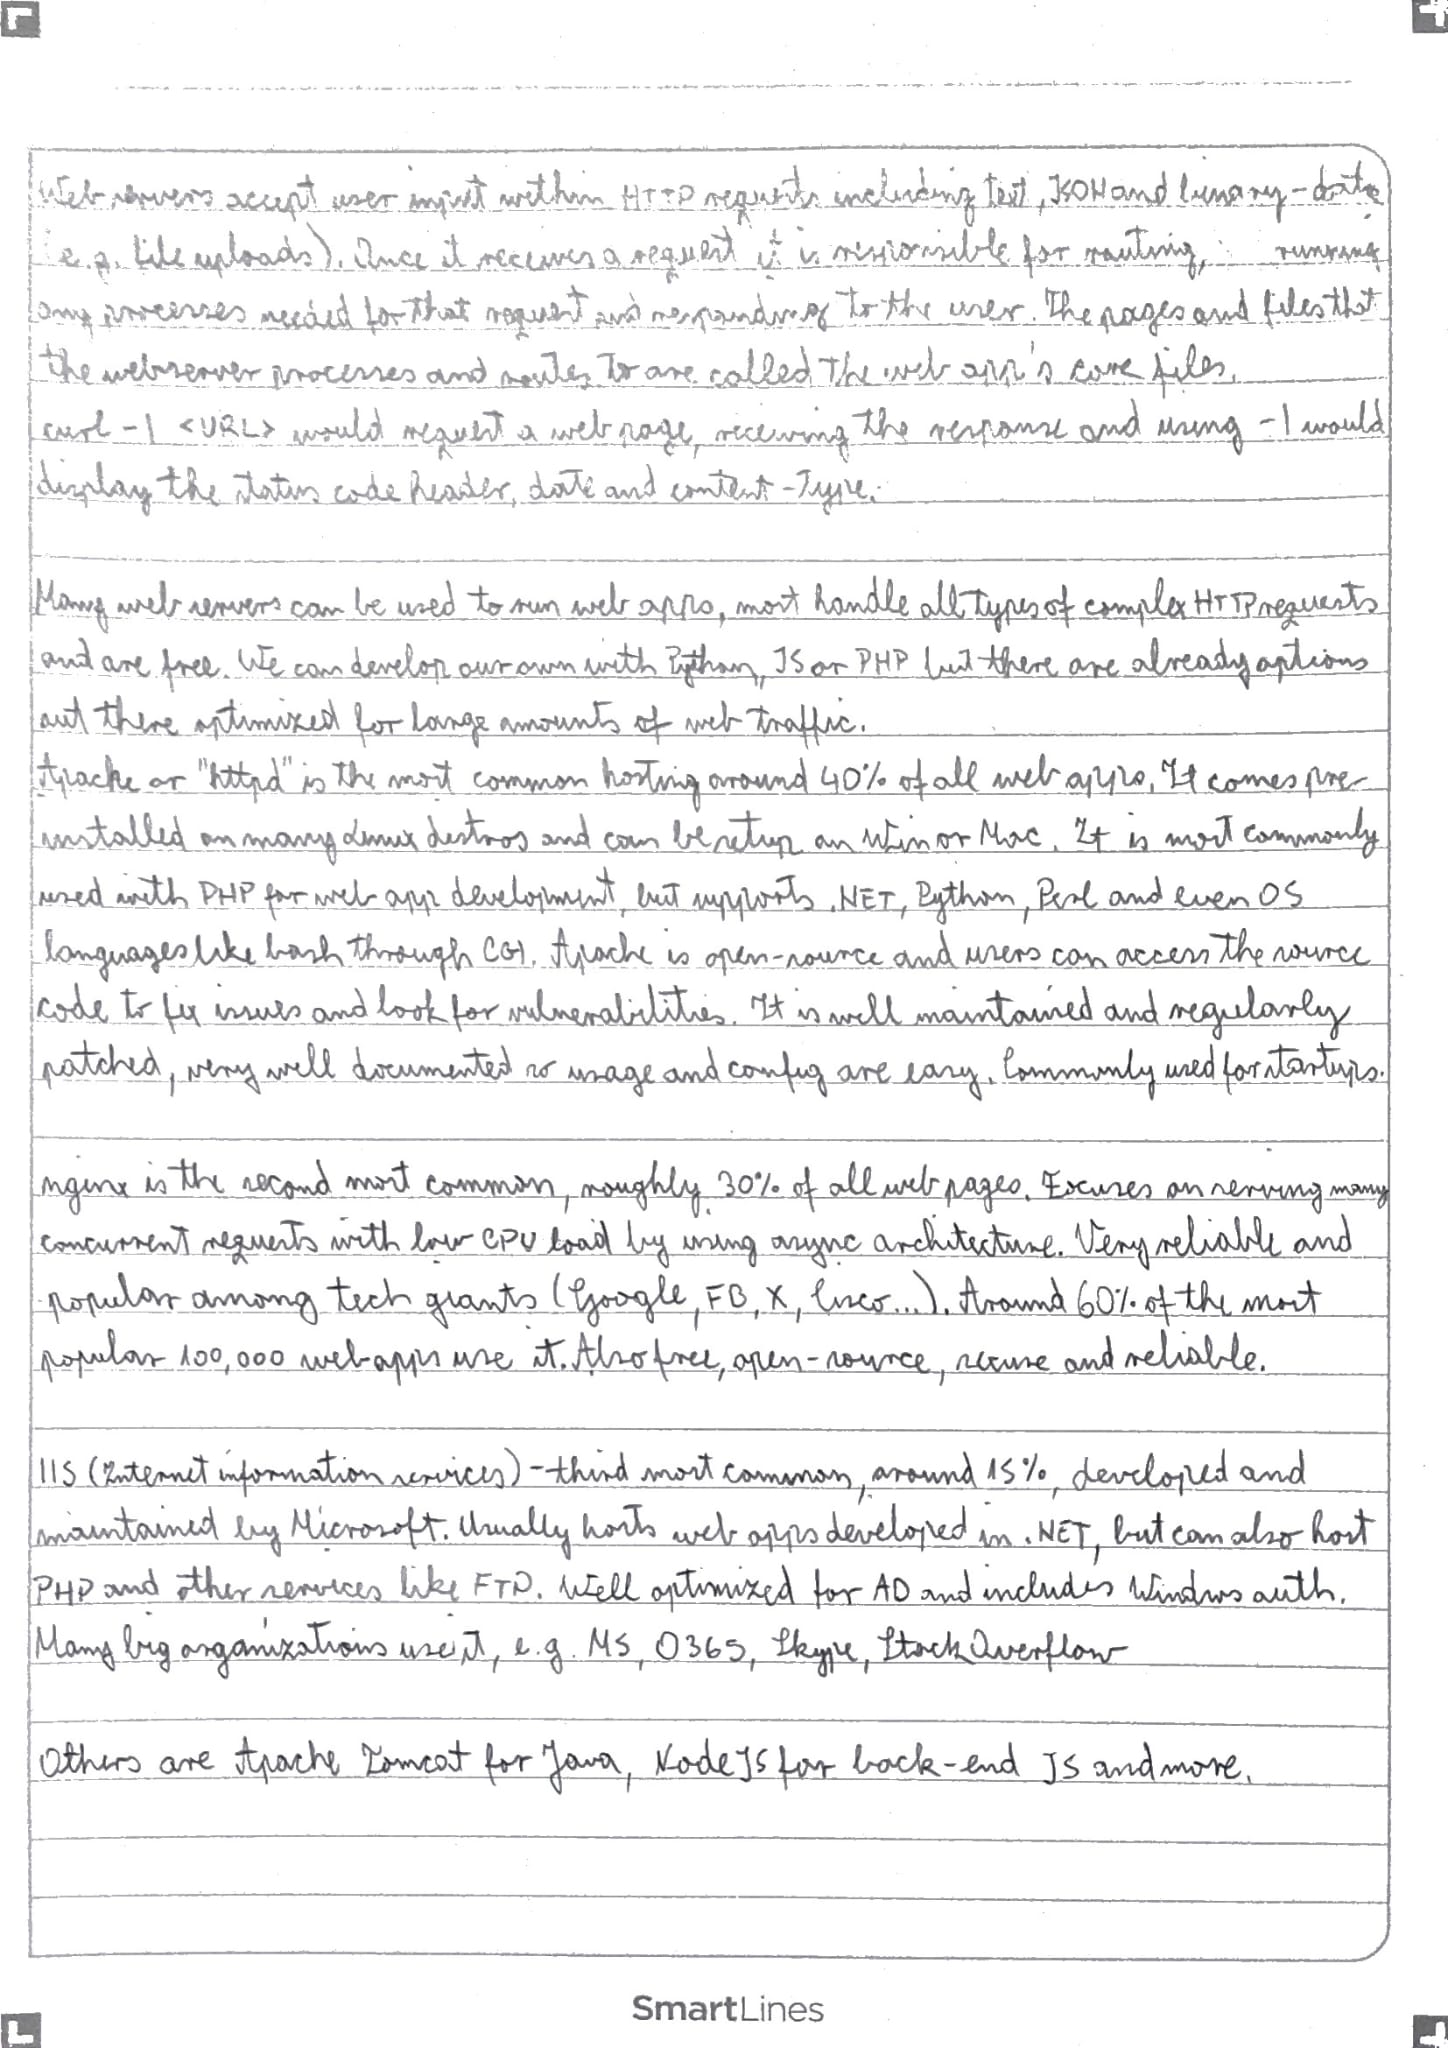 Web servers accept user input within HTTP requests including text, JSON and binary-data
(e.g. file uploads). Once it receives a request it is responsible for routing, running
any processes needed for that request and responding to the user. The pages and files that
the webserver processes and routes to are called the web app's core files.
curl -I <URL> would request a web page, receiving the response and using -I would
display the status code header, date and content-type.
Many web servers can be used to run web apps, most handle all types of complex HTTP requests
and are free. We can develop our own with Python, JS or PHP but there are already options
out there optimized for large amounts of web traffic.
Apache or "httpd" is the most common hosting around 40% of all web apps. It comes pre-
installed on many Linux distros and can be setup on Win or Mac. It is most commonly
used with PHP for web app development, but supports .NET, Python, Perl and even OS
languages like bash through CGI. Apache is open-source and users can access the source
code to fix issues and look for vulnerabilities. It is well maintained and regularly
patched, very well documented so usage and config are easy. Commonly used for startups.
nginx is the second most common, roughly 30% of all web pages. Focuses on serving many
concurrent requests with low CPU load by using async architecture. Very reliable and
popular among tech giants (Google, FB, X, Cisco...). Around 60% of the most
popular 100,000 web apps use it. Also free, open-source, secure and reliable.
IIS (Internet information services) - third most common, around 15%, developed and
maintained by Microsoft. Usually hosts web apps developed in .NET, but can also host
PHP and other services like FTP. Well optimized for AD and includes Windws auth.
Many big organizations use it, e.g. MS, O365, Skype, Stack Overflow
Others are Apache Tomcat for Java, Node JS for back-end JS and more.
SmartLines